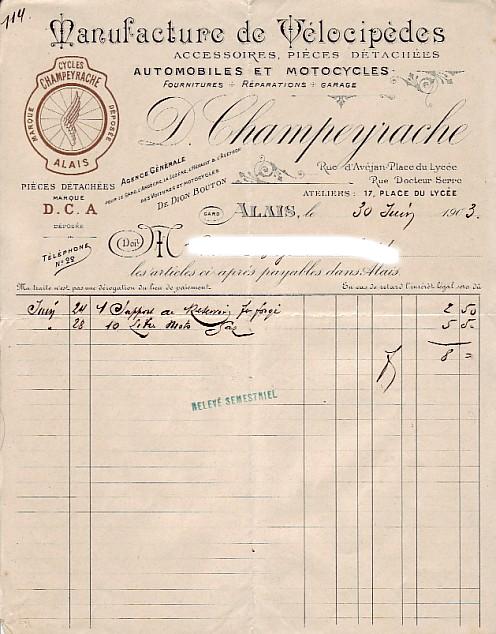 114.
Manufacture de Vélocipèdes
ACCESSOIRES, PIÈCES DÉTACHÉES
AUTOMOBILES ET MOTOCYCLES.
FOURNITURES ÷ RÉPARATIONS ÷ GARAGE
CYCLES
CHAMPEYRACHE
MARQUE DÉPOSÉE
ALAIS
D. Champeyrache
PIÈCES DÉTACHÉES
MARQUE
D.C.A
DÉPOSÉE
TÉLÉPHONE
No 28
AGENCE GÉNÉRALE
POUR LE GARD, L'ARDÈCHE, LA LOZÈRE, L'HÉRAULT & L'AVEYRON
DES VOITURES ET MOTOCYCLES
DE DION BOUTON
Rue d'Avéjan-Place du Lycée
Rue Docteur Serre
ATELIERS: 17, PLACE DU LYCÉE
GARD ALAIS, le 30 Juin 1903.
Doit M
les articles ci-après payables dans Alais.
Ma traite n'est pas une dérogation du lieu de paiement. En cas de retard l'intérêt légal sera dû
Juin 24 1 Support de Réservoir fer forgé 2 50
" 28 10 Litre Moto 5 50
8 =
RELEVÉ SEMESTRIEL